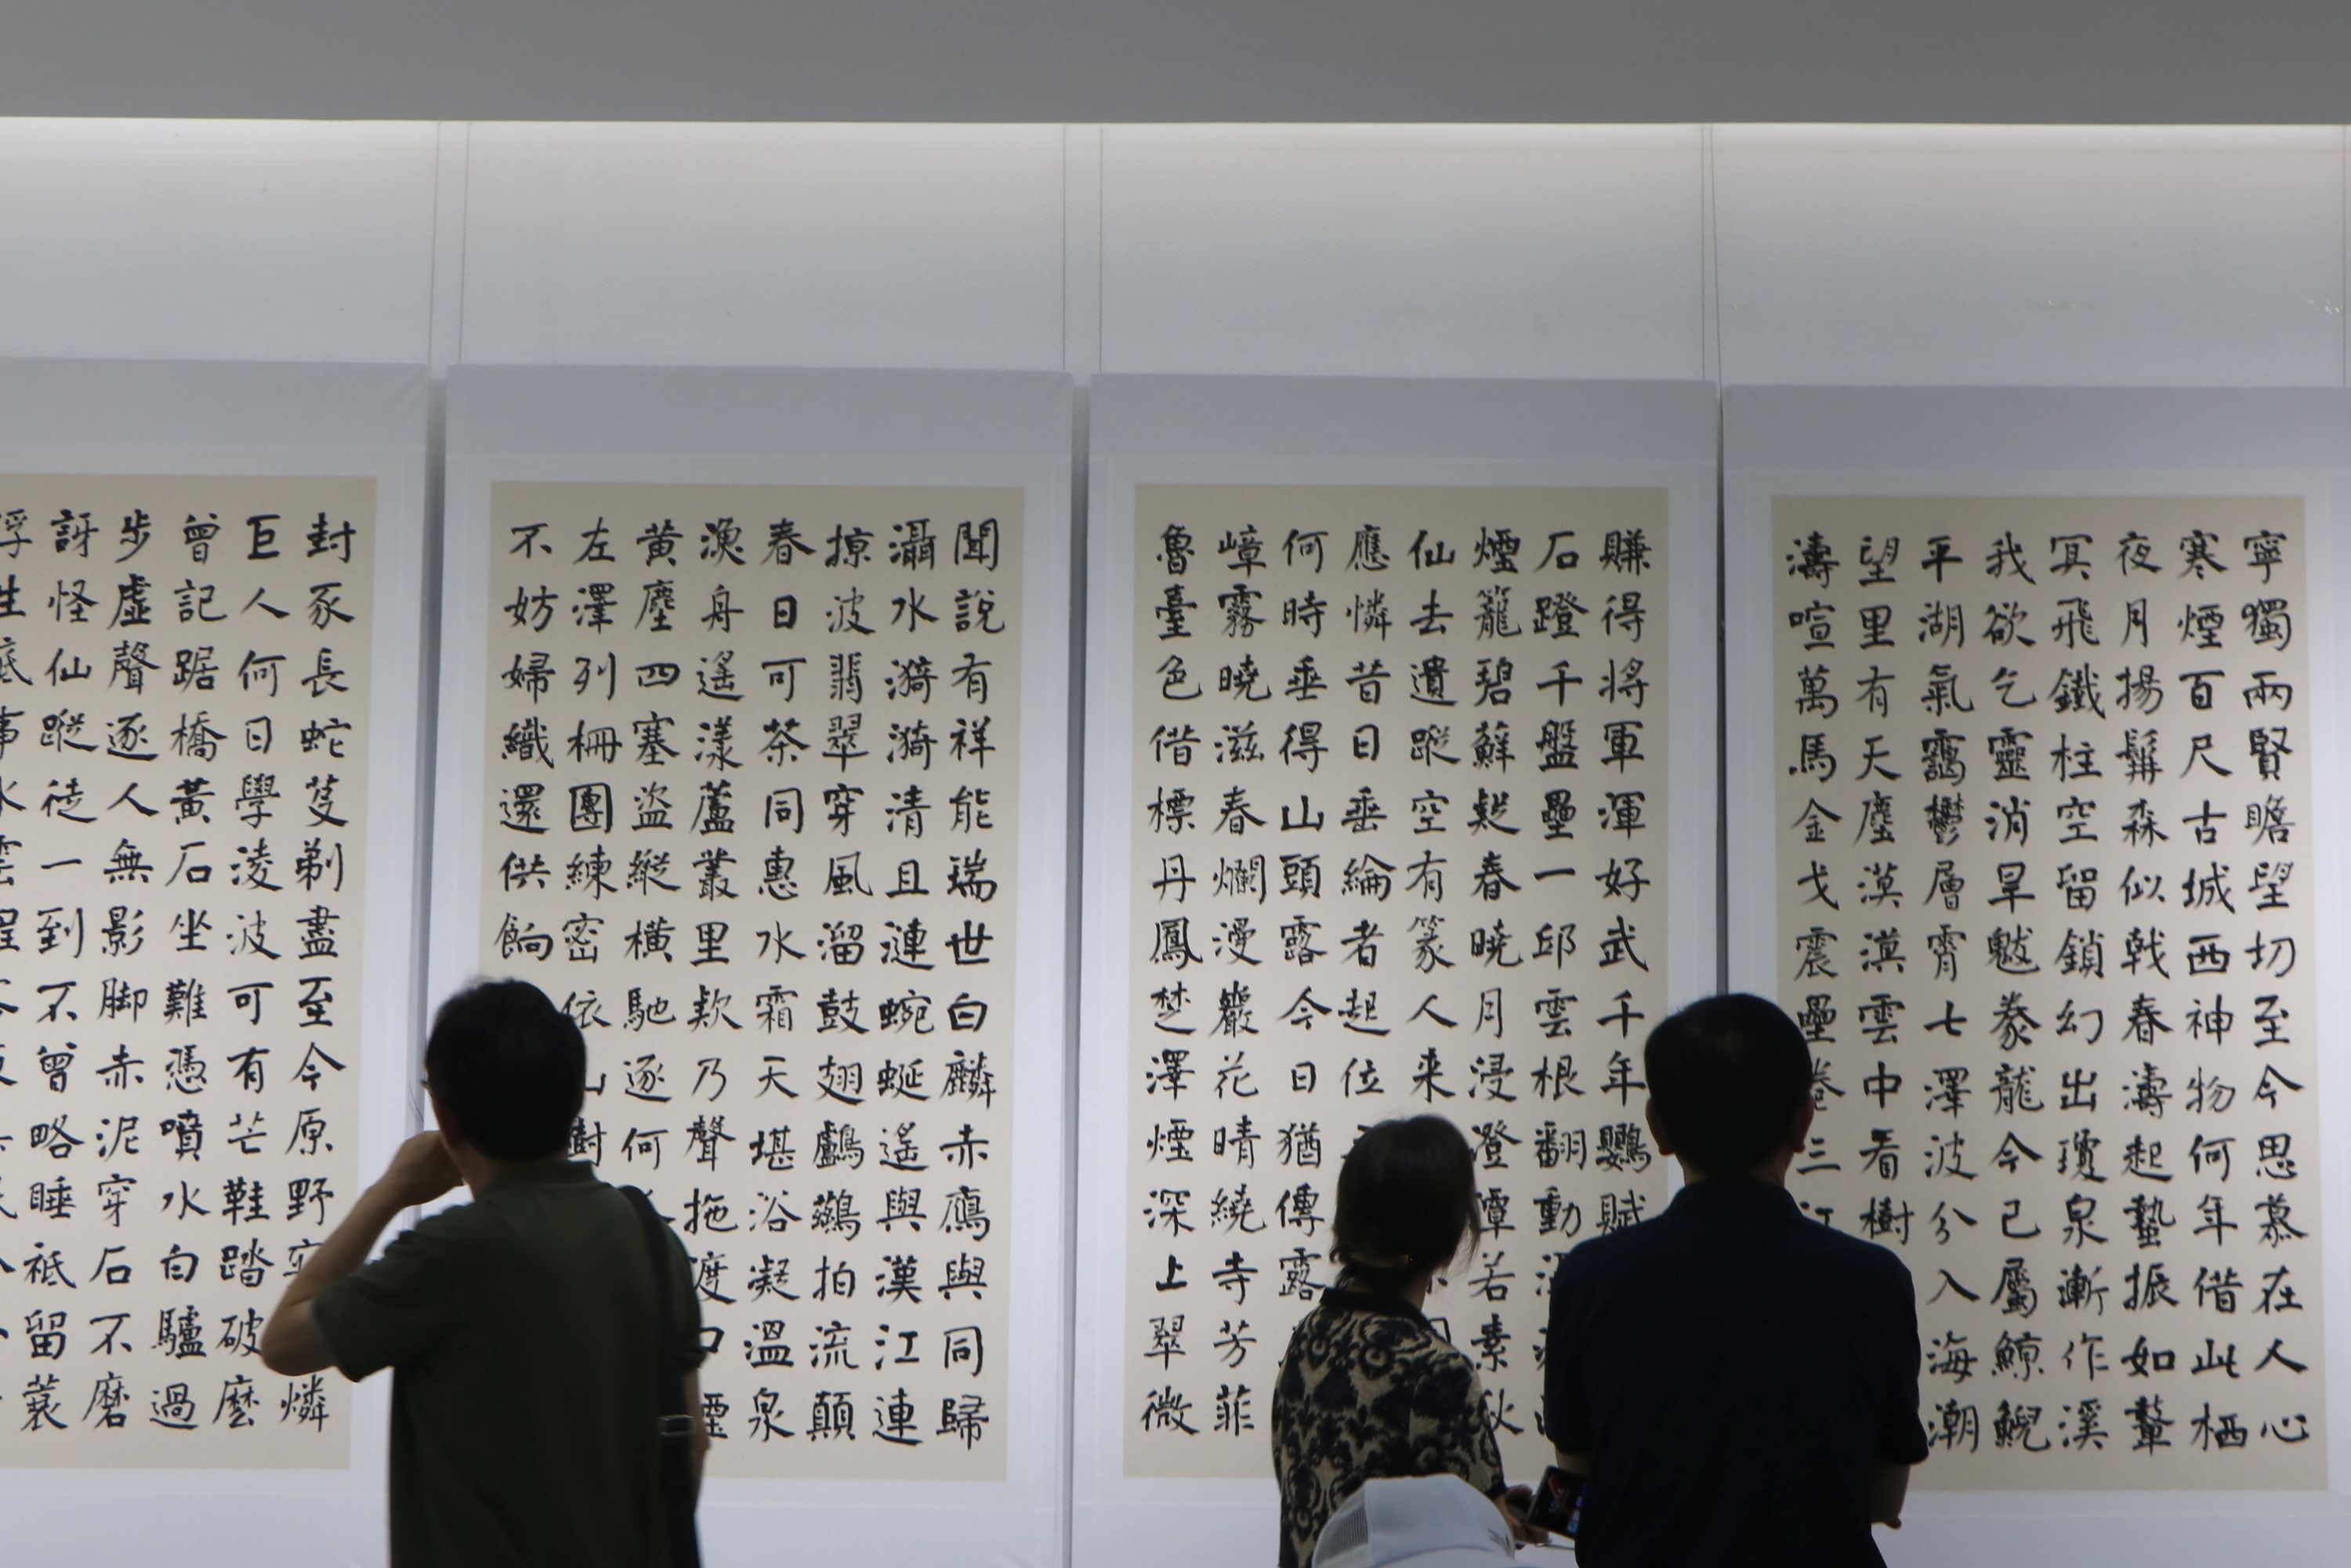 寧獨兩賢瞻望切至今思慕在人心
寒煙百尺古城西神物何年借此栖
夜月揚髯森似戟春濤起蟄振如鼙
冥飛鐵柱空留鎖幻出瓊泉漸作溪
我欲乞靈消旱魃豢龍今已屬鯨鯢
平湖氣靄鬱層霄七澤波分入海潮
望里有天塵漠漠雲中看樹
濤喧萬馬金戈震壘捲三江
賺得將軍渾好武千年鸚賦
石蹬千盤壘一邱雲根翻動
煙籠碧蘚點春曉月浸澄潭若素秋
仙去遺蹤空有篆人来
應憐昔日垂綸者起位
何時垂得山頭露今日猶傳露
嶂霧曉滋春爛漫巖花晴繞寺芳菲
魯臺色借標丹鳳楚澤煙深上翠微
聞說有祥能瑞世白麟赤鴈與同歸
灄水漪漪清且漣蜿蜒遙與漢江連
掠波翡翠穿風溜鼓翅鸕鷀拍流顛
春日可茶同惠水霜天堪浴凝溫泉
漁舟遙漾蘆叢里欸乃聲拖渡口煙
黄塵四塞盜縱橫馳逐何
左澤列柵團練密依山樹
不妨婦織還供餉
封豕長蛇芟剃盡至今原野燐
巨人何日學淩波可有芒鞋踏破麽
曾記踞橋黃石坐難憑噴水白驢過
步虛聲逐人無影脚赤泥穿石不磨
訝怪仙蹤徒一到不曾略睡祗留蓑